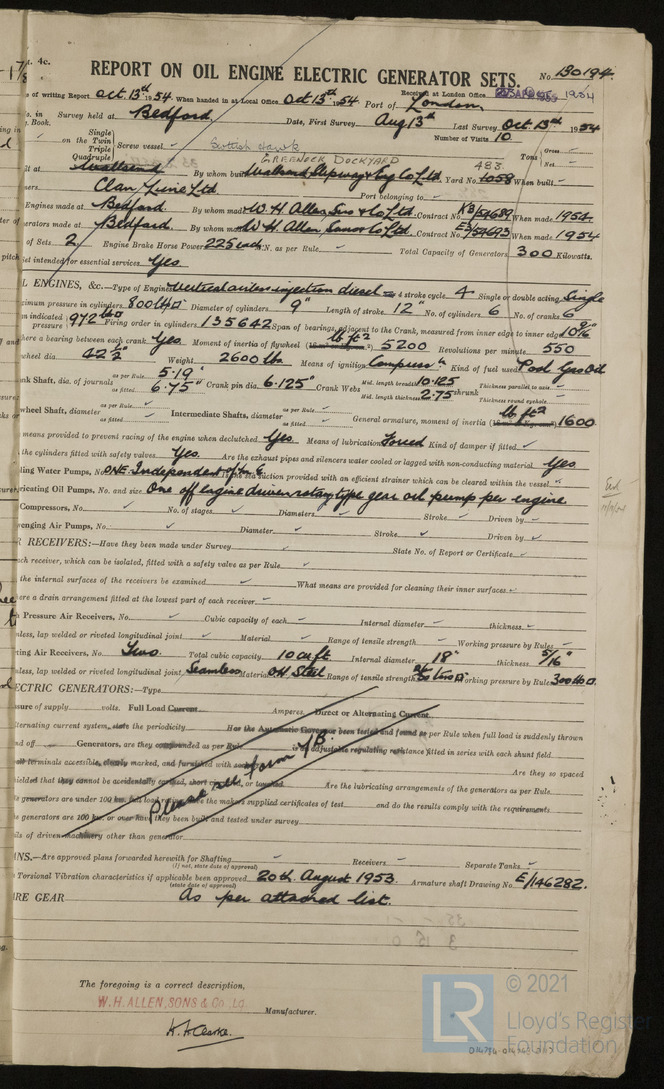 REPORT ON OIL ENGINE ELECTRIC GENERATOR SETS. No. 130194.
of writing Report Oct. 13th 1954 When handed in at Local Office Oct 13th 54 Port of London Received at London Office 1954
Survey held at Bedford Date, First Survey Aug 13th Last Survey Oct. 13th 1954
Book. Number of Visits 10
Single
on the Twin
Triple
Quadruple
Screw vessel Scottish Hawk Tons Gross
Net
GREENOCK DOCKYARD 483
Wallsend By whom built Wallsend Slipway & Eng Co Ltd. Yard No. 1058 When built
Clan Line Ltd. Port belonging to
Engines made at Bedford. By whom made W. H Allen, Sons & Co Ltd. Contract No. KB/54689 When made 1954
made at Bedford. By whom made W. H Allen, Sons & Co Ltd. Contract No. E3/54693 When made 1954
of Sets 2. Engine Brake Horse Power 225 each N. as per Rule Total Capacity of Generators 300 Kilowatts.
intended for essential services Yes
ENGINES, &c.—Type of Engine 4 stroke cycle 4 Single or double acting Single
pressure in cylinders 800 lb Diameter of cylinders 9" Length of stroke 12" No. of cylinders 6 No. of cranks 6
indicated pressure 97.2 lb Firing order in cylinders 135642 Span of bearings, adjacent to the Crank, measured from inner edge to inner edge 10 9/16"
a bearing between each crank Yes Moment of inertia of flywheel lb ft² 5200 Revolutions per minute 550
wheel dia 42 1/2" Weight 2600 lbs Means of ignition Kind of fuel used Pool Gas Oil
Shaft, dia. of journals as per Rule 5.19" as fitted 6.75" Crank pin dia 6.125" Crank Webs Mid. length breadth 10.125 Mid. length thickness 2.75 shrunk Thickness parallel to axis Thickness round eyehole
wheel Shaft, diameter as per Rule as fitted Intermediate Shafts, diameter as per Rule as fitted General armature, moment of inertia lb ft² 1600
means provided to prevent racing of the engine when declutched Yes Means of lubrication Forced Kind of damper if fitted
the cylinders fitted with safety valves Yes. Are the exhaust pipes and silencers water cooled or lagged with non-conducting material Yes
Water Pumps, No. ONE. Independent of suction provided with an efficient strainer which can be cleared within the vessel
Oil Pumps, No. and size One off engine driven rotary type gear oil pump per engine
Compressors, No. No. of stages Diameters Stroke Driven by
Air Pumps, No. Diameter Stroke Driven by
RECEIVERS:—Have they been made under Survey State No. of Report or Certificate
receiver, which can be isolated, fitted with a safety valve as per Rule
the internal surfaces of the receivers be examined What means are provided for cleaning their inner surfaces
a drain arrangement fitted at the lowest part of each receiver
Pressure Air Receivers, No. Cubic capacity of each Internal diameter thickness
lap welded or riveted longitudinal joint Material Range of tensile strength Working pressure by Rules
Air Receivers, No. Two. Total cubic capacity 10 cu ft. Internal diameter 18" thickness 5/16"
lap welded or riveted longitudinal joint Seamless Material OH Steel Range of tensile strength Working pressure by Rules 300 lb
ELECTRIC GENERATORS:—Type
of supply volts. Full Load Current Amperes. Direct or Alternating Current
alternating current system, state the periodicity Has the Automatic Governor been tested and found as per Rule when full load is suddenly thrown
and off Generators, are they compounded as per Rule is an adjustable regulating resistance fitted in series with each shunt field
all terminals accessible, clearly marked, and furnished with Are they so spaced
shielded that they cannot be accidentally earthed, short circuited, or touched Are the lubricating arrangements of the generators as per Rule
generators are under 100 kw. full load rating have the makers supplied certificates of test and do the results comply with the requirements
generators are 100 kw. or over have they been built and tested under survey
of driven machinery other than generator
Please see form
PLANS.—Are approved plans forwarded herewith for Shafting Receivers Separate Tanks
(If not, state date of approval)
Torsional Vibration characteristics if applicable been approved 20th August 1953. Armature shaft Drawing No. E/146282.
(state date of approval)
SPARE GEAR As per attached list.
The foregoing is a correct description,
W. H. ALLEN, SONS & Co. Ld.
Manufacturer.
LR © 2021
Lloyd's Register
Foundation